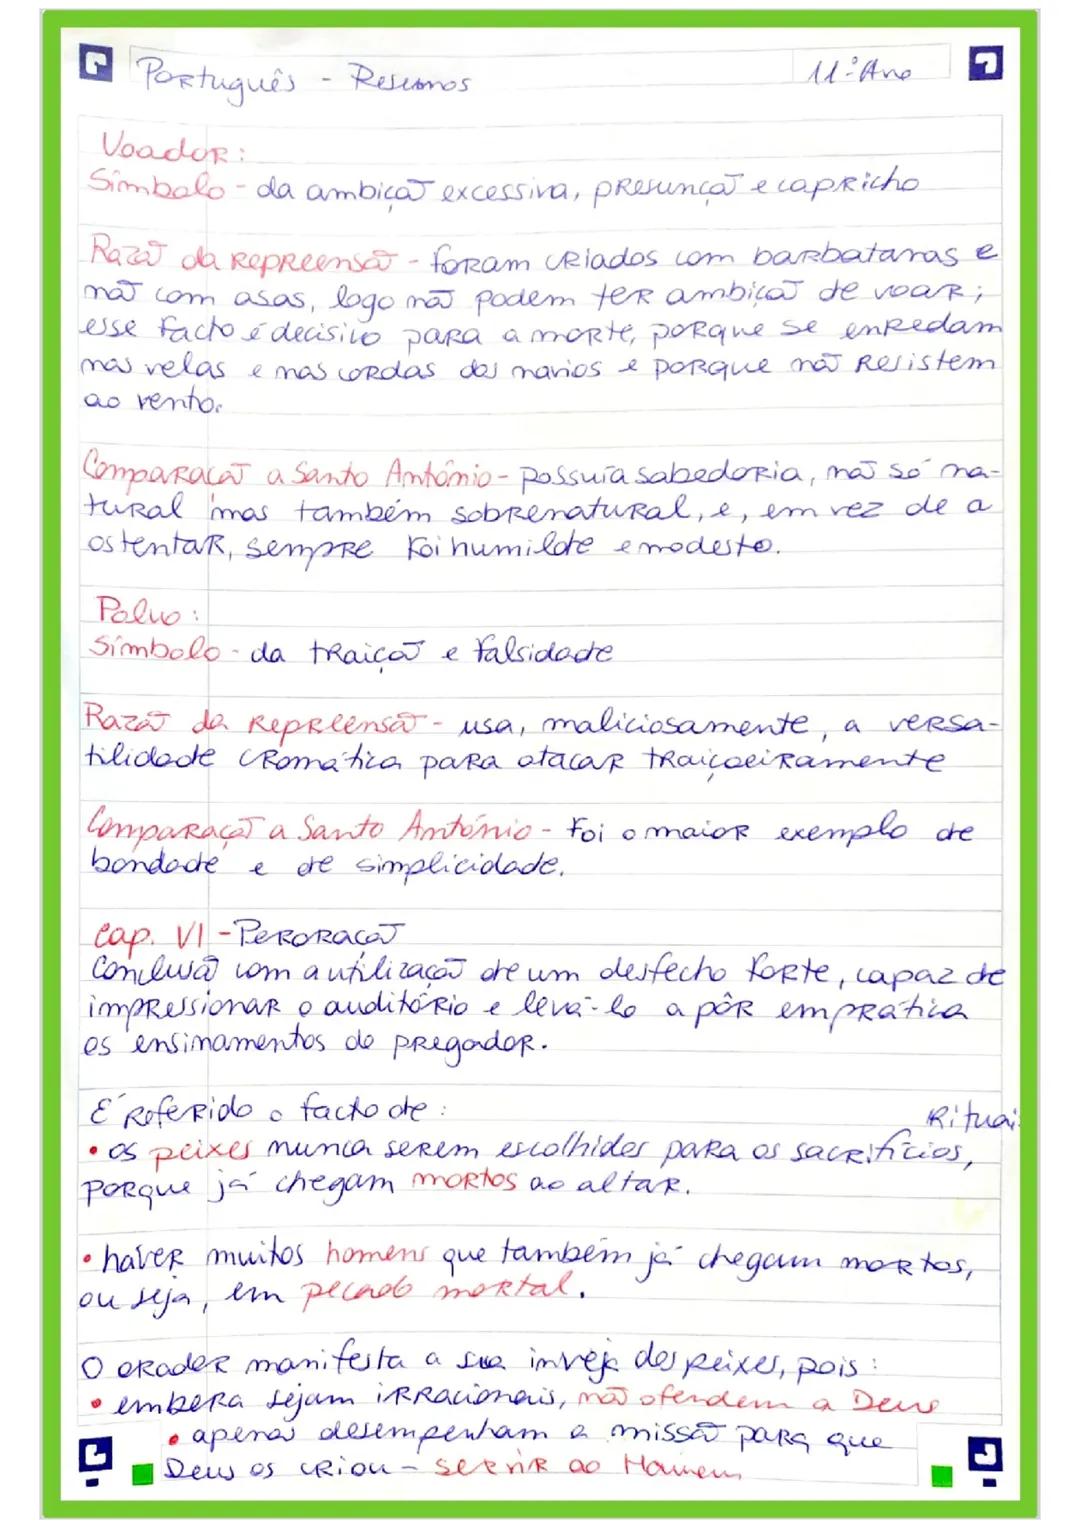 Português - Resumos
11º Ano
Voador:
Símbolo - da ambição excessiva, presunção e capricho
Razão da repreensão - foram criados com barbatanas e
não com asas, logo não podem ter ambição de voar;
esse facto é decisivo para a morte, porque se enredam
nas velas e nas cordas dos navios e porque não resistem
ao vento.
Comparação a Santo António - possuía sabedoria, não só na-
tural mas também sobrenatural, e, em vez de a
ostentar, sempre foi humilde e modesto.
Polvo:
Símbolo - da traição e falsidade
Razão da repreensão - usa, maliciosamente, a versa-
tilidade cromática para atacar traiçoeiramente
Comparação a Santo António - Foi o maior exemplo de
bondade e de simplicidade.
Cap. VI - Peroração
Conclusão com a utilização de um desfecho forte, capaz de
impressionar o auditório e levá-lo a pôr em prática
os ensinamentos do pregador.
É referido o facto de:
Rituais
• os peixes nunca serem escolhidos para os sacrifícios,
porque já chegam mortos ao altar.
• haver muitos homens que também já chegam mortos,
ou seja, em pecado mortal.
O orador manifesta a sua inveja dos peixes, pois:
• embora sejam irracionais, não ofendem a Deus
• apenas desempenham a missão para que
Deus os criou - servir ao Homem